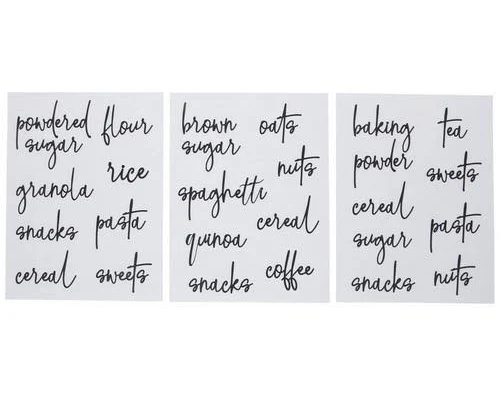 powdered flour
sugar
rice
granola
snacks pasta
cereal sweets
brown oats
sugar
nuts
spaghetti
cereal
quinoa
coffee
snacks
baking tea
powder
sweets
cereal
pasta
sugar
snacks nuts